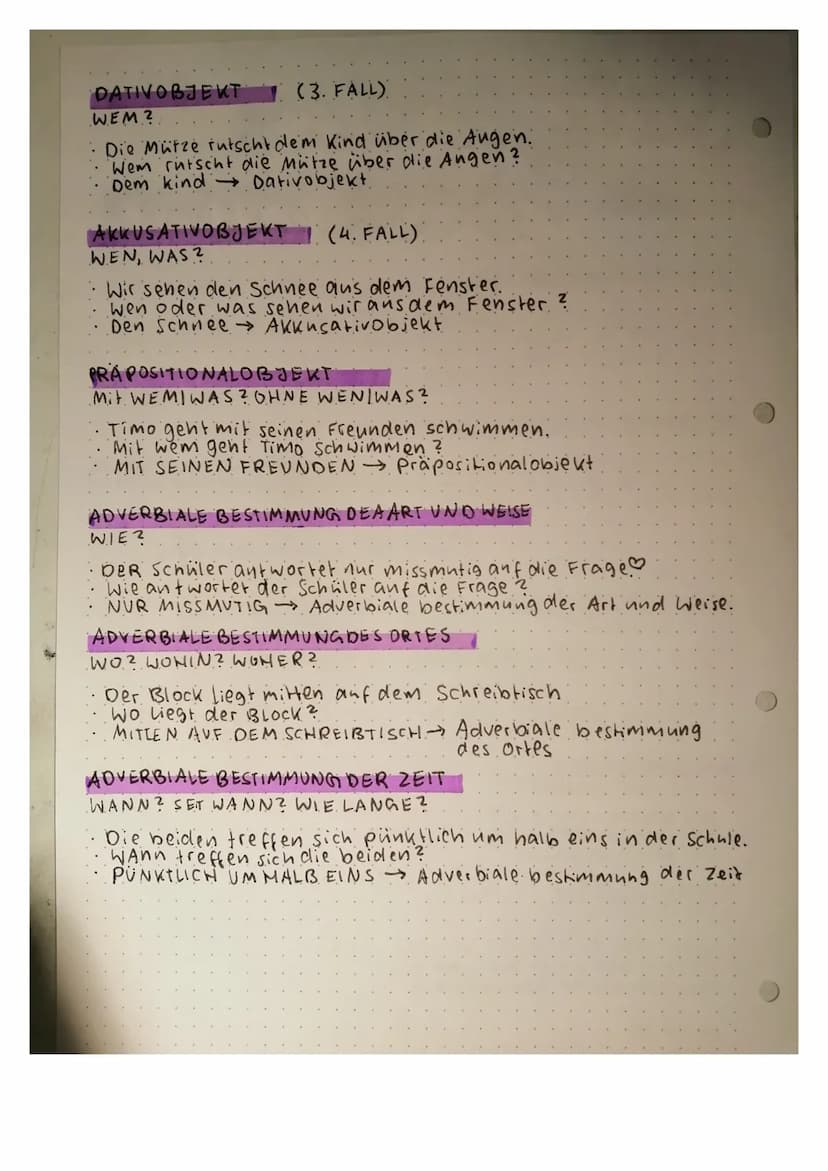 DATIVOBJEKT (3. FALL)
WEM?
· Die Mütze rutscht dem Kind über die Augen.
· Wem rutscht die Mütze über die Augen?
· Dem kind → Dativobjekt
AKKUSATIVOBJEKT (4. FALL)
WEN, WAS?
· Wir sehen den Schnee aus dem Fenster.
· Wen oder was sehen wir aus dem Fenster?
· Den Schnee → Akkusativobjekt
PRÄPOSITIONALOBJEKT
Mit WEM|WAS? OHNE WEN|WAS?
· Timo geht mit seinen Freunden schwimmen.
· Mit wem geht Timo schwimmen?
· MIT SEINEN FREUNDEN → Präpositionalobjekt
ADVERBIALE BESTIMMUNG DEA ART UND WEISE
WIE?
· DER Schüler antwortet nur missmutig auf die Frage♡
· Wie antwortet der Schüler auf die Frage?
· NUR MISSMUTIG → Adverbiale bestimmung der Art und Weise.
ADVERBIALE BESTIMMUNG DES ORTES
WO? WOHIN? WOHER?
· Der Block liegt mitten auf dem Schreibtisch
· Wo liegt der Block?
· MITTEN AUF DEM SCHREIBTISCH → Adverbiale bestimmung
des Ortes
ADVERBIALE BESTIMMUNG DER ZEIT
WANN? SEIT WANN? WIE LANGE?
· Die beiden treffen sich pünktlich um halb eins in der Schule.
· WAnn treffen sich die beiden?
· PÜNKTLICH UM HALB EINS → Adverbiale bestimmung der Zeit